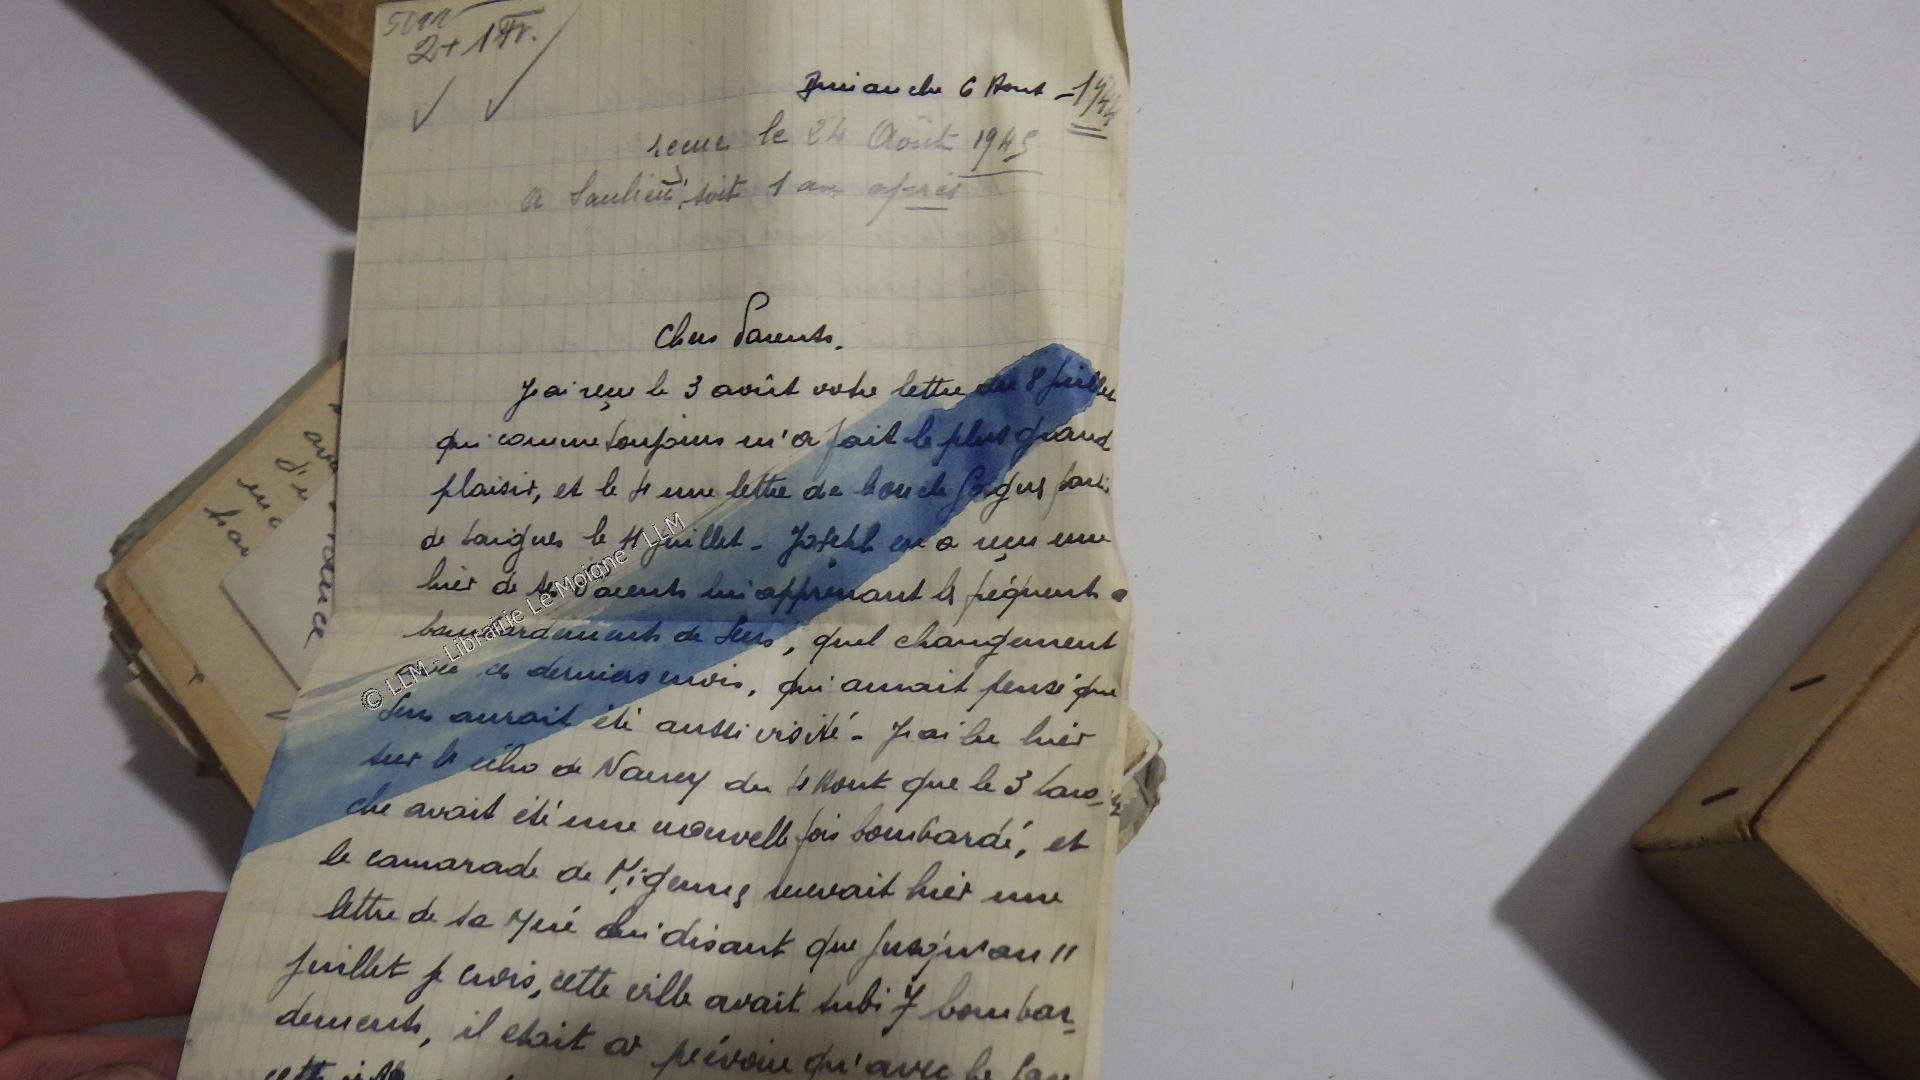 2 + 1 Fr.
Dimanche 6 Aout - 1944
recue le 24 Août 1945
a Saulieu, soit 1 an après
Chers Parents.
J'ai reçu le 3 août votre lettre du 8 Juillet
qui comme toujours m'a fait le plus grand
plaisir, et le 4 une lettre de
de le 4 Juillet - Joseph en a reçu une
hier de ses Parents lui apprenant les fréquents
bombardements de Sens, quel changement
ces derniers mois, qui aurait pensé que
Sens aurait été aussi visité - J'ai lu hier
sur l'écho de Nancy du 4 Aout que le 3 Laro-
che avait été une nouvelle fois bombardé, et
le camarade de Migennes recevait hier une
lettre de sa Mère lui disant que jusqu'au 11
Juillet je crois, cette ville avait subi 7 bombar-
dements, il etait a prévoir qu'avec le
cette ville
© LLM - Librairie Le Moigne - LLM